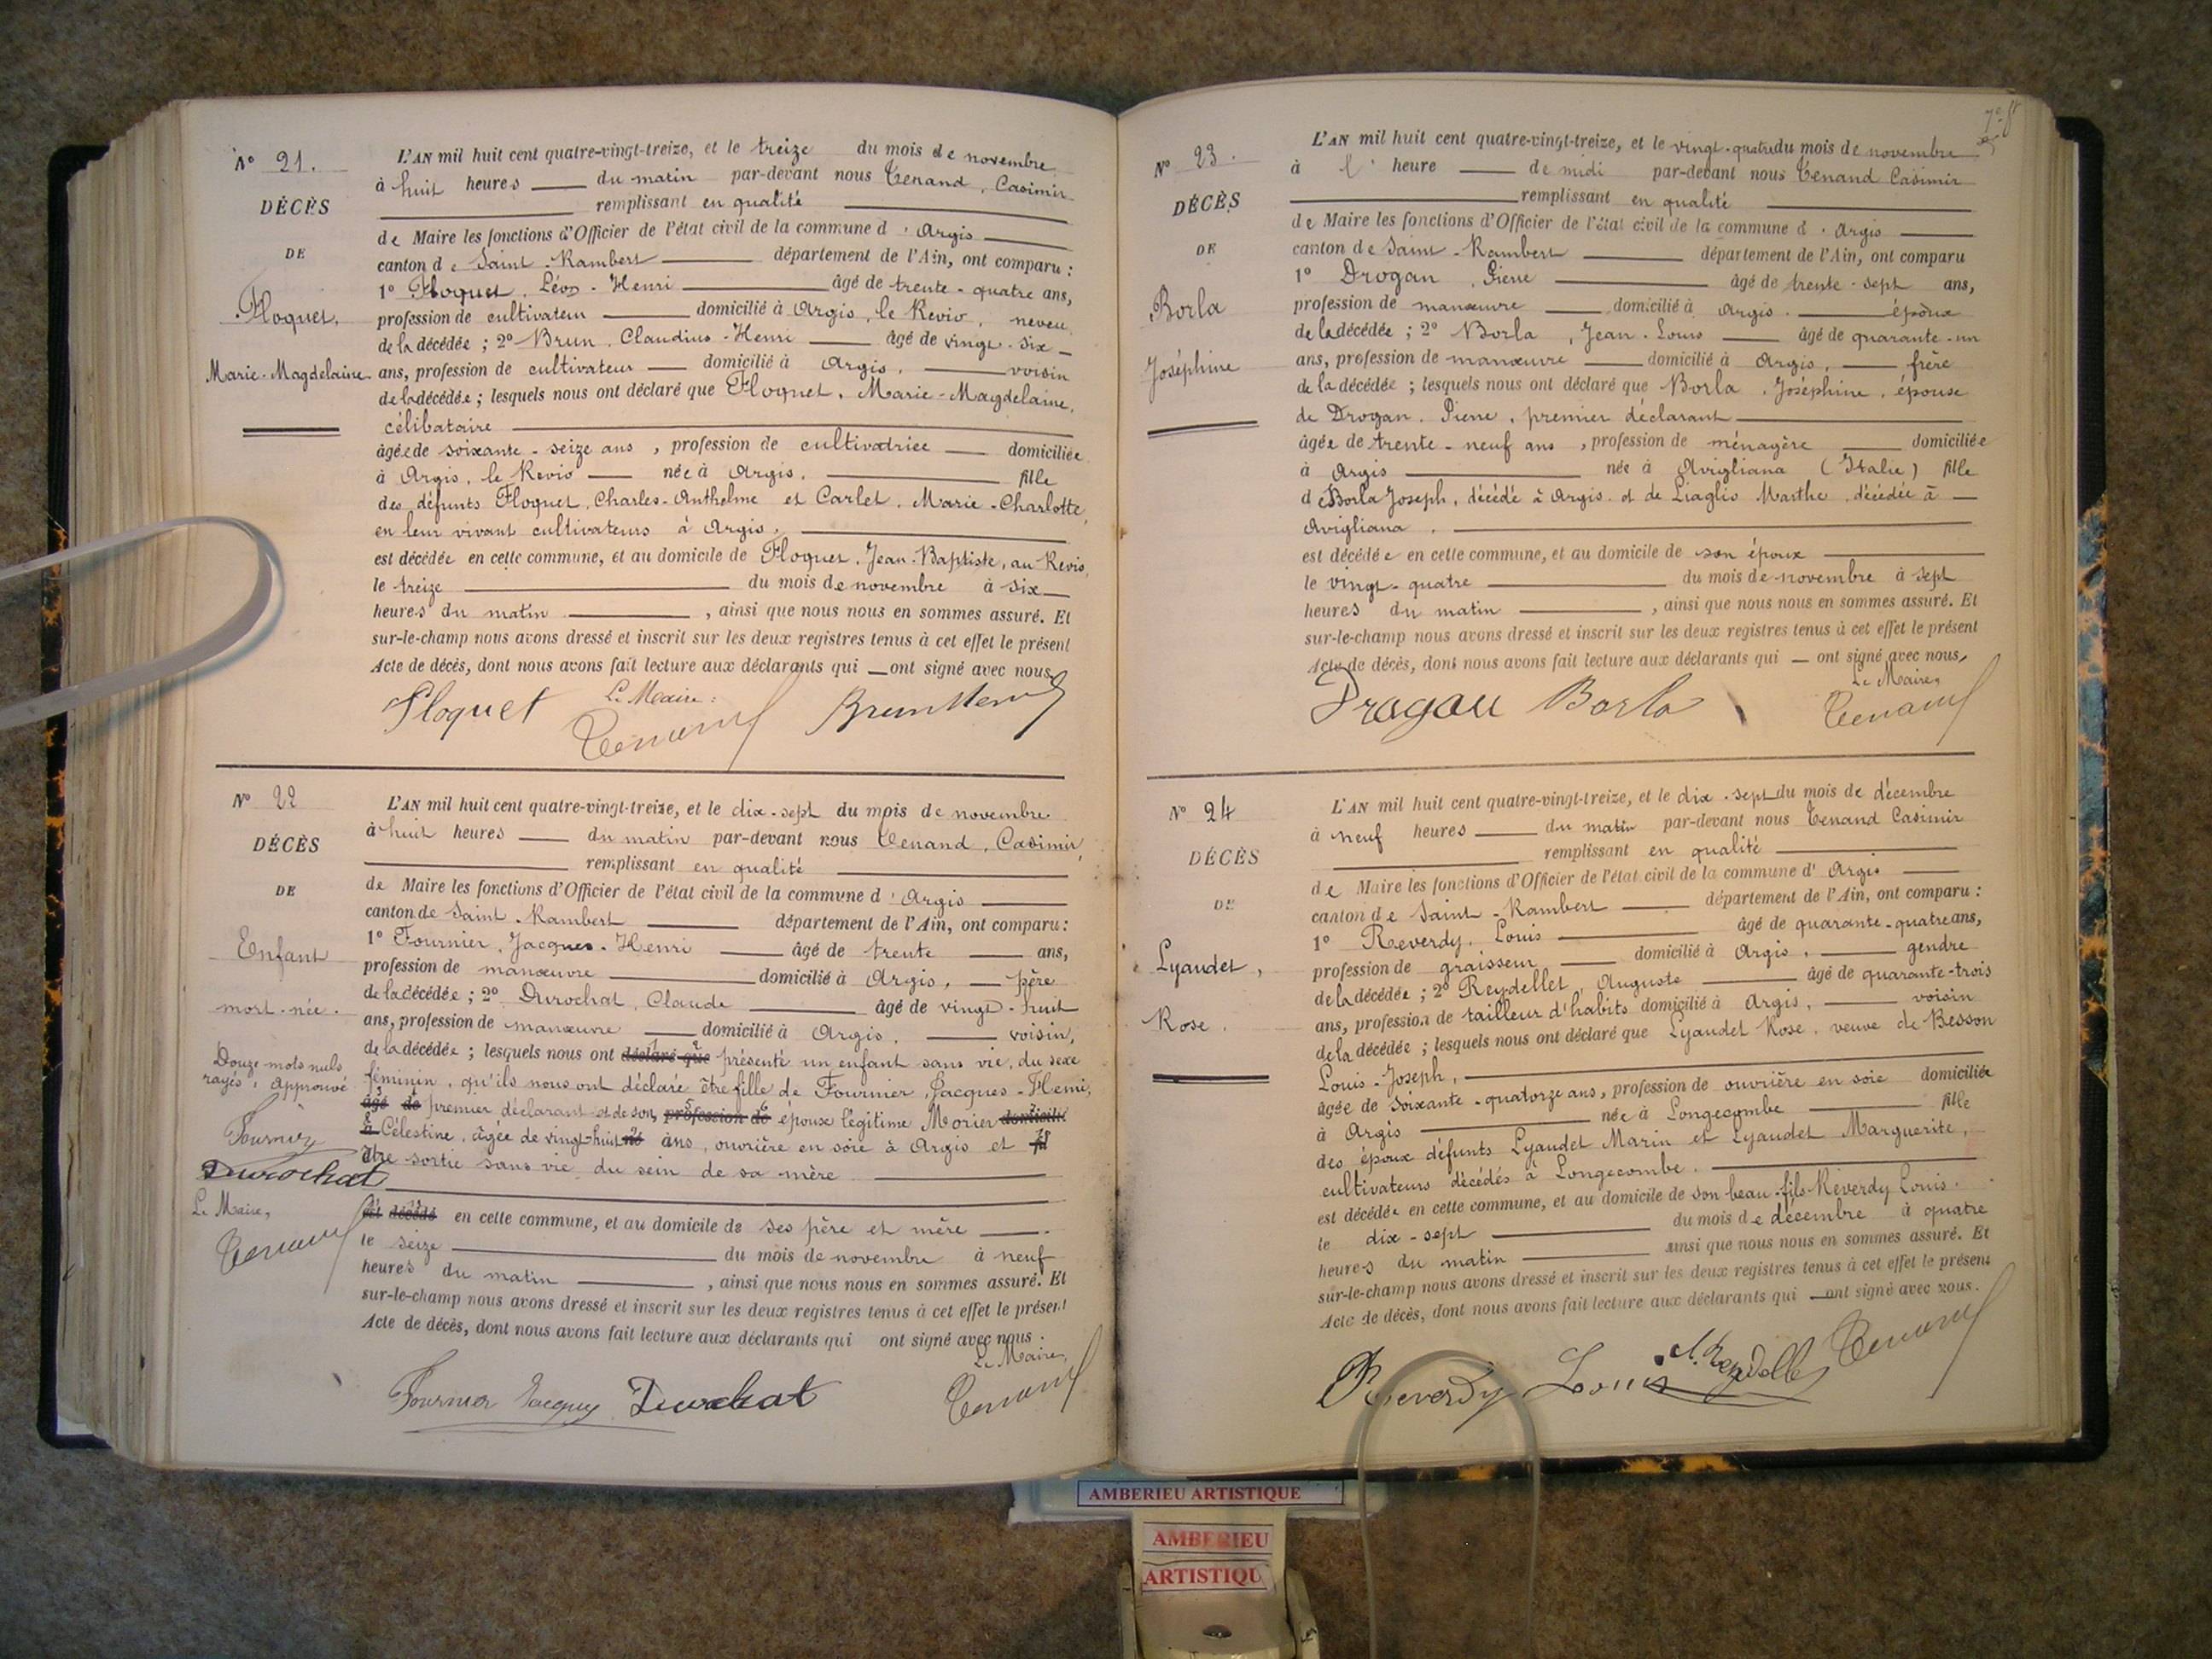 N° 21.
DÉCÈS
DE
Floquet,
Marie-Magdelaine
L'AN mil huit cent quatre-vingt-treize, et le treize du mois de novembre
à huit heures du matin par-devant nous Tenand, Casimir
remplissant en qualité
de Maire les fonctions d'Officier de l'état civil de la commune d'Argis
canton de Saint-Rambert département de l'Ain, ont comparu :
1° Floquet, Léon-Henri âgé de trente-quatre ans,
profession de cultivateur domicilié à Argis, le Revio, neveu
de la décédée ; 2° Brun, Claudius-Henri âgé de vingt-six
ans, profession de cultivateur domicilié à Argis, voisin
de la décédée ; lesquels nous ont déclaré que Floquet, Marie-Magdelaine,
célibataire
âgée de soixante-seize ans, profession de cultivatrice domiciliée
à Argis, le Revio née à Argis, fille
des défunts Floquet, Charles-Anthelme et Carlet, Marie-Charlotte,
en leur vivant cultivateurs à Argis,
est décédée en cette commune, et au domicile de Floquet, Jean-Baptiste, au Revio,
le treize du mois de novembre à six
heures du matin, ainsi que nous nous en sommes assuré. Et
sur-le-champ nous avons dressé et inscrit sur les deux registres tenus à cet effet le présent
Acte de décès, dont nous avons fait lecture aux déclarants qui ont signé avec nous.
Floquet Le Maire : Tenand Brun Henri
N° 22
DÉCÈS
DE
Enfant
mort-née.
Douze mots nuls
rayés, Approuvé
Fournier
Durochat
Le Maire,
Tenand
L'AN mil huit cent quatre-vingt-treize, et le dix-sept du mois de novembre
à huit heures du matin par-devant nous Tenand, Casimir,
remplissant en qualité
de Maire les fonctions d'Officier de l'état civil de la commune d'Argis
canton de Saint-Rambert département de l'Ain, ont comparu :
1° Fournier, Jacques-Henri âgé de trente ans,
profession de manœuvre domicilié à Argis, père
de la décédée ; 2° Durochat, Claude âgé de vingt-huit
ans, profession de manœuvre domicilié à Argis, voisin,
de la décédée ; lesquels nous ont déclaré que présenté un enfant sans vie, du sexe
féminin, qu'ils nous ont déclaré être fille de Fournier, Jacques-Henri,
âgé de premier déclarant et de son, profession de épouse légitime Morier domicilié
à Célestine, âgée de vingt-huit né ans, ouvrière en soie à Argis et fil
être sortie sans vie du sein de sa mère
est décédé en cette commune, et au domicile de ses père et mère
le seize du mois de novembre à neuf
heures du matin, ainsi que nous nous en sommes assuré. Et
sur-le-champ nous avons dressé et inscrit sur les deux registres tenus à cet effet le présent
Acte de décès, dont nous avons fait lecture aux déclarants qui ont signé avec nous.
Le Maire,
Fournier Jacques Durochat Tenand
N° 23.
DÉCÈS
DE
Borla
Joséphine
L'AN mil huit cent quatre-vingt-treize, et le vingt-quatre du mois de novembre
à l' heure de midi par-devant nous Tenand Casimir
remplissant en qualité
de Maire les fonctions d'Officier de l'état civil de la commune d'Argis
canton de Saint-Rambert département de l'Ain, ont comparu
1° Drogan, Pierre âgé de trente-sept ans,
profession de manœuvre domicilié à Argis. époux
de la décédée ; 2° Borla, Jean-Louis âgé de quarante-un
ans, profession de manœuvre domicilié à Argis, frère
de la décédée ; lesquels nous ont déclaré que Borla, Joséphine, épouse
de Drogan, Pierre, premier déclarant
âgée de trente-neuf ans, profession de ménagère domiciliée
à Argis née à Avigliana (Italie) fille
de Borla Joseph, décédé à Argis et de Liaglio Marthe, décédée à
Avigliana.
est décédée en cette commune, et au domicile de son époux
le vingt-quatre du mois de novembre à sept
heures du matin, ainsi que nous nous en sommes assuré. Et
sur-le-champ nous avons dressé et inscrit sur les deux registres tenus à cet effet le présent
Acte de décès, dont nous avons fait lecture aux déclarants qui ont signé avec nous,
Le Maire,
Dragau Borla Tenand
N° 24
DÉCÈS
DE
Lyaudet,
Rose.
L'AN mil huit cent quatre-vingt-treize, et le dix-sept du mois de décembre
à neuf heures du matin par-devant nous Tenand Casimir
remplissant en qualité
de Maire les fonctions d'Officier de l'état civil de la commune d'Argis
canton de Saint-Rambert département de l'Ain, ont comparu :
1° Reverdy, Louis âgé de quarante-quatre ans,
profession de graisseur domicilié à Argis, gendre
de la décédée ; 2° Reydellet, Auguste âgé de quarante-trois
ans, profession de tailleur d'habits domicilié à Argis, voisin
de la décédée ; lesquels nous ont déclaré que Lyaudet Rose, veuve de Besson
Louis-Joseph,
âgée de soixante-quatorze ans, profession de ouvrière en soie domiciliée
à Argis née à Longecombe fille
des époux défunts Lyaudet Marin et Lyaudet Marguerite,
cultivateurs décédés à Longecombe.
est décédée en cette commune, et au domicile de son beau-fils Reverdy Louis.
le dix-sept du mois de décembre à quatre
heures du matin ainsi que nous nous en sommes assuré. Et
sur-le-champ nous avons dressé et inscrit sur les deux registres tenus à cet effet le présent
Acte de décès, dont nous avons fait lecture aux déclarants qui ont signé avec nous.
Reverdy Louis A. Reydellet Tenand
AMBERIEU ARTISTIQUE
AMBERIEU
ARTISTIQU